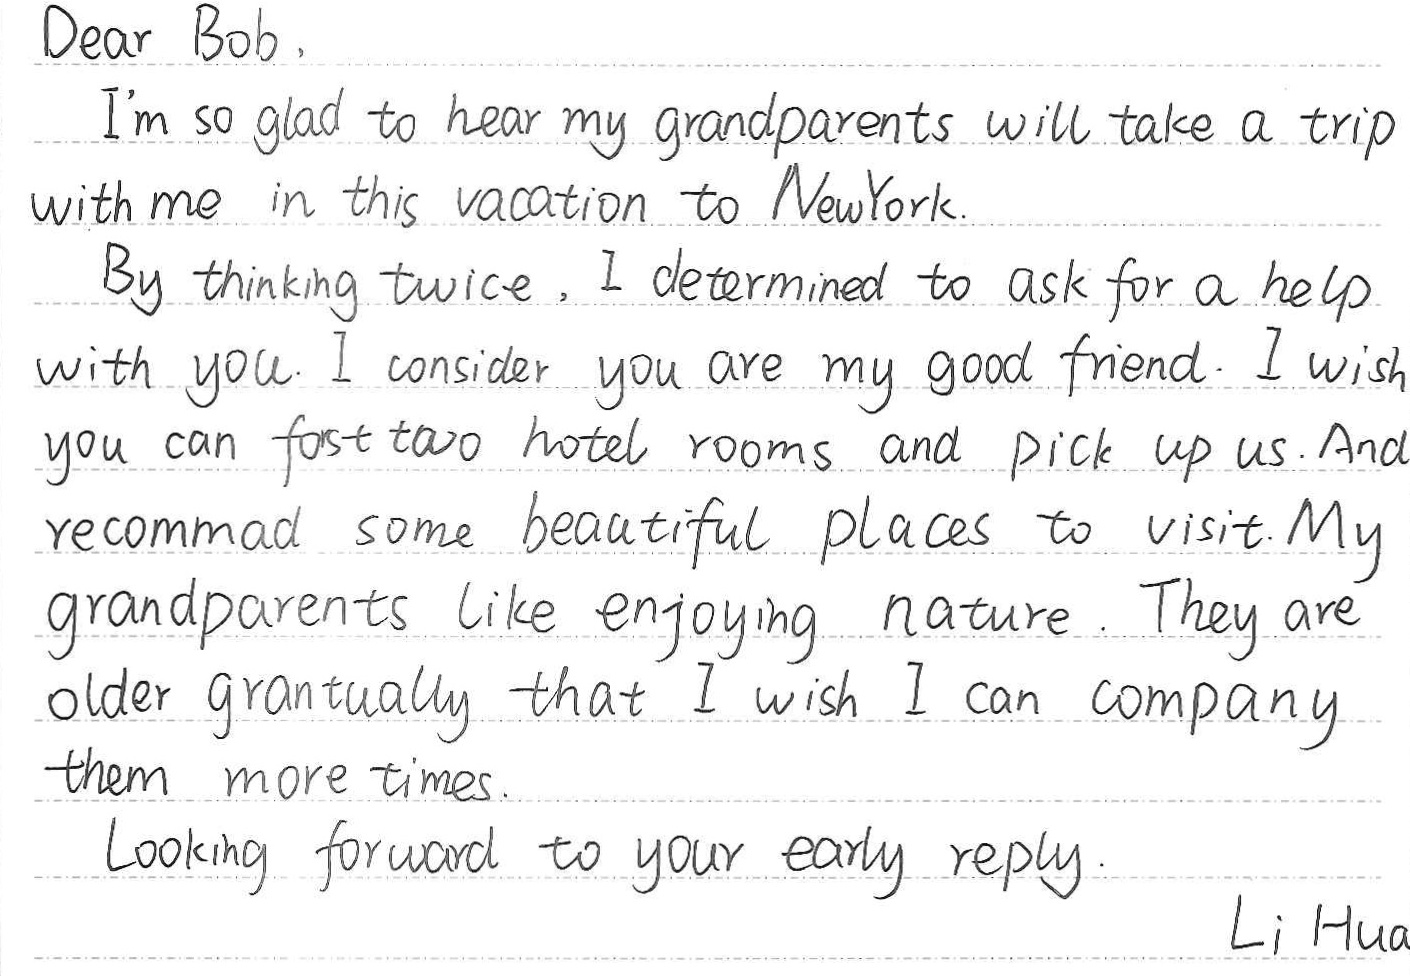 Dear Bob,
I'm so glad to hear my grandparents will take a trip
with me in this vacation to NewYork.
By thinking twice, I determined to ask for a help
with you. I consider you are my good friend. I wish
you can two hotel rooms and pick up us. And
recommad some beautiful places to visit. My
grandparents like enjoying nature. They are
older grantually that I wish I can company
them more times.
Looking forward to your early reply.
Li Hua